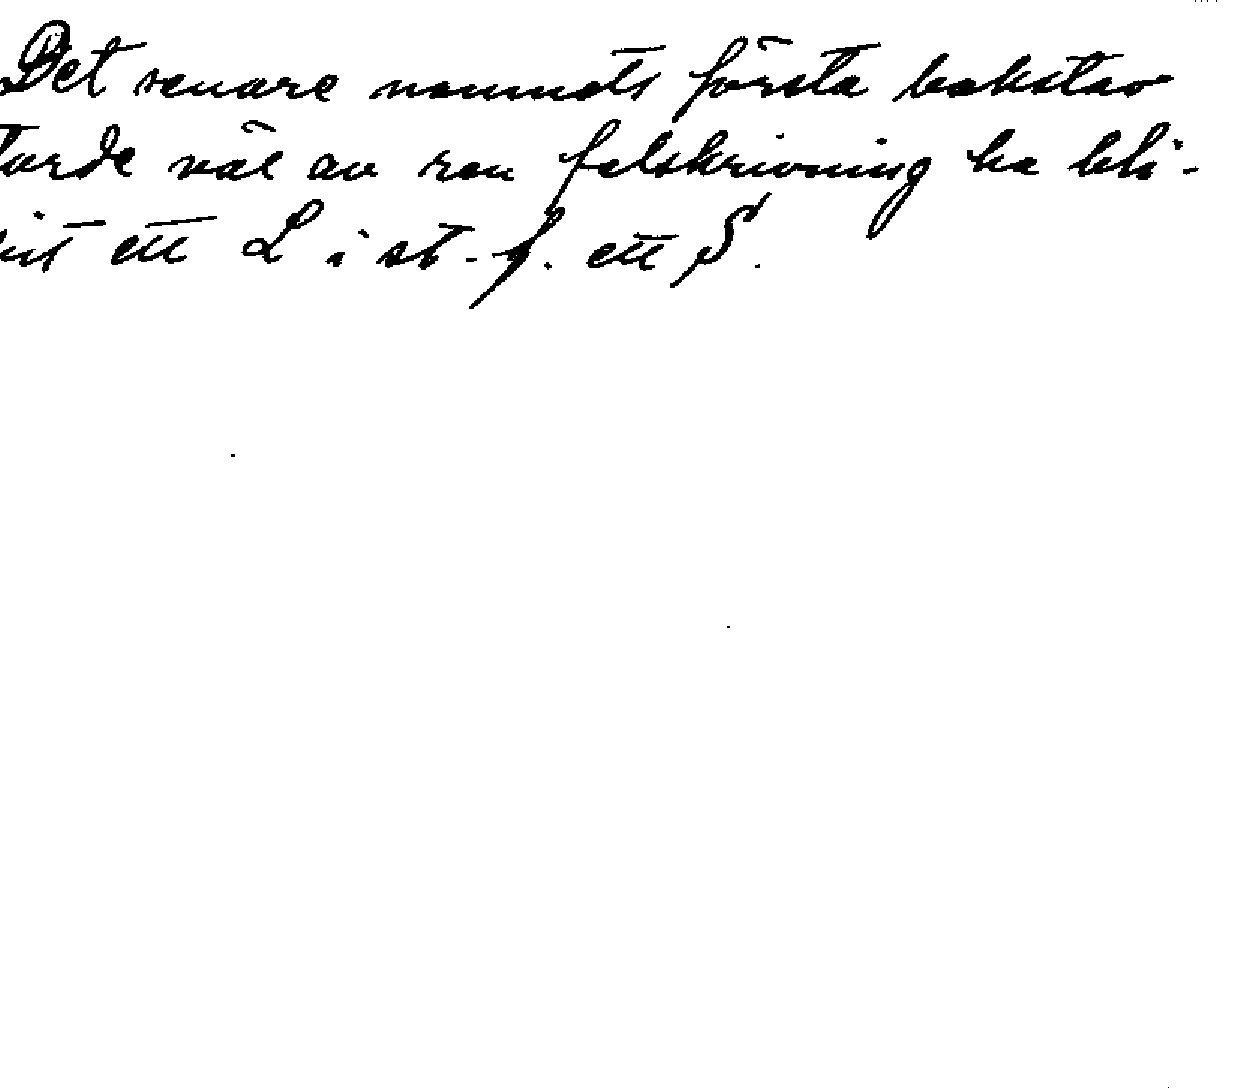 Det senare namnets första bokstav
torde väl av ren felskrivning ha bli-
vit ett L i st. f. ett S.